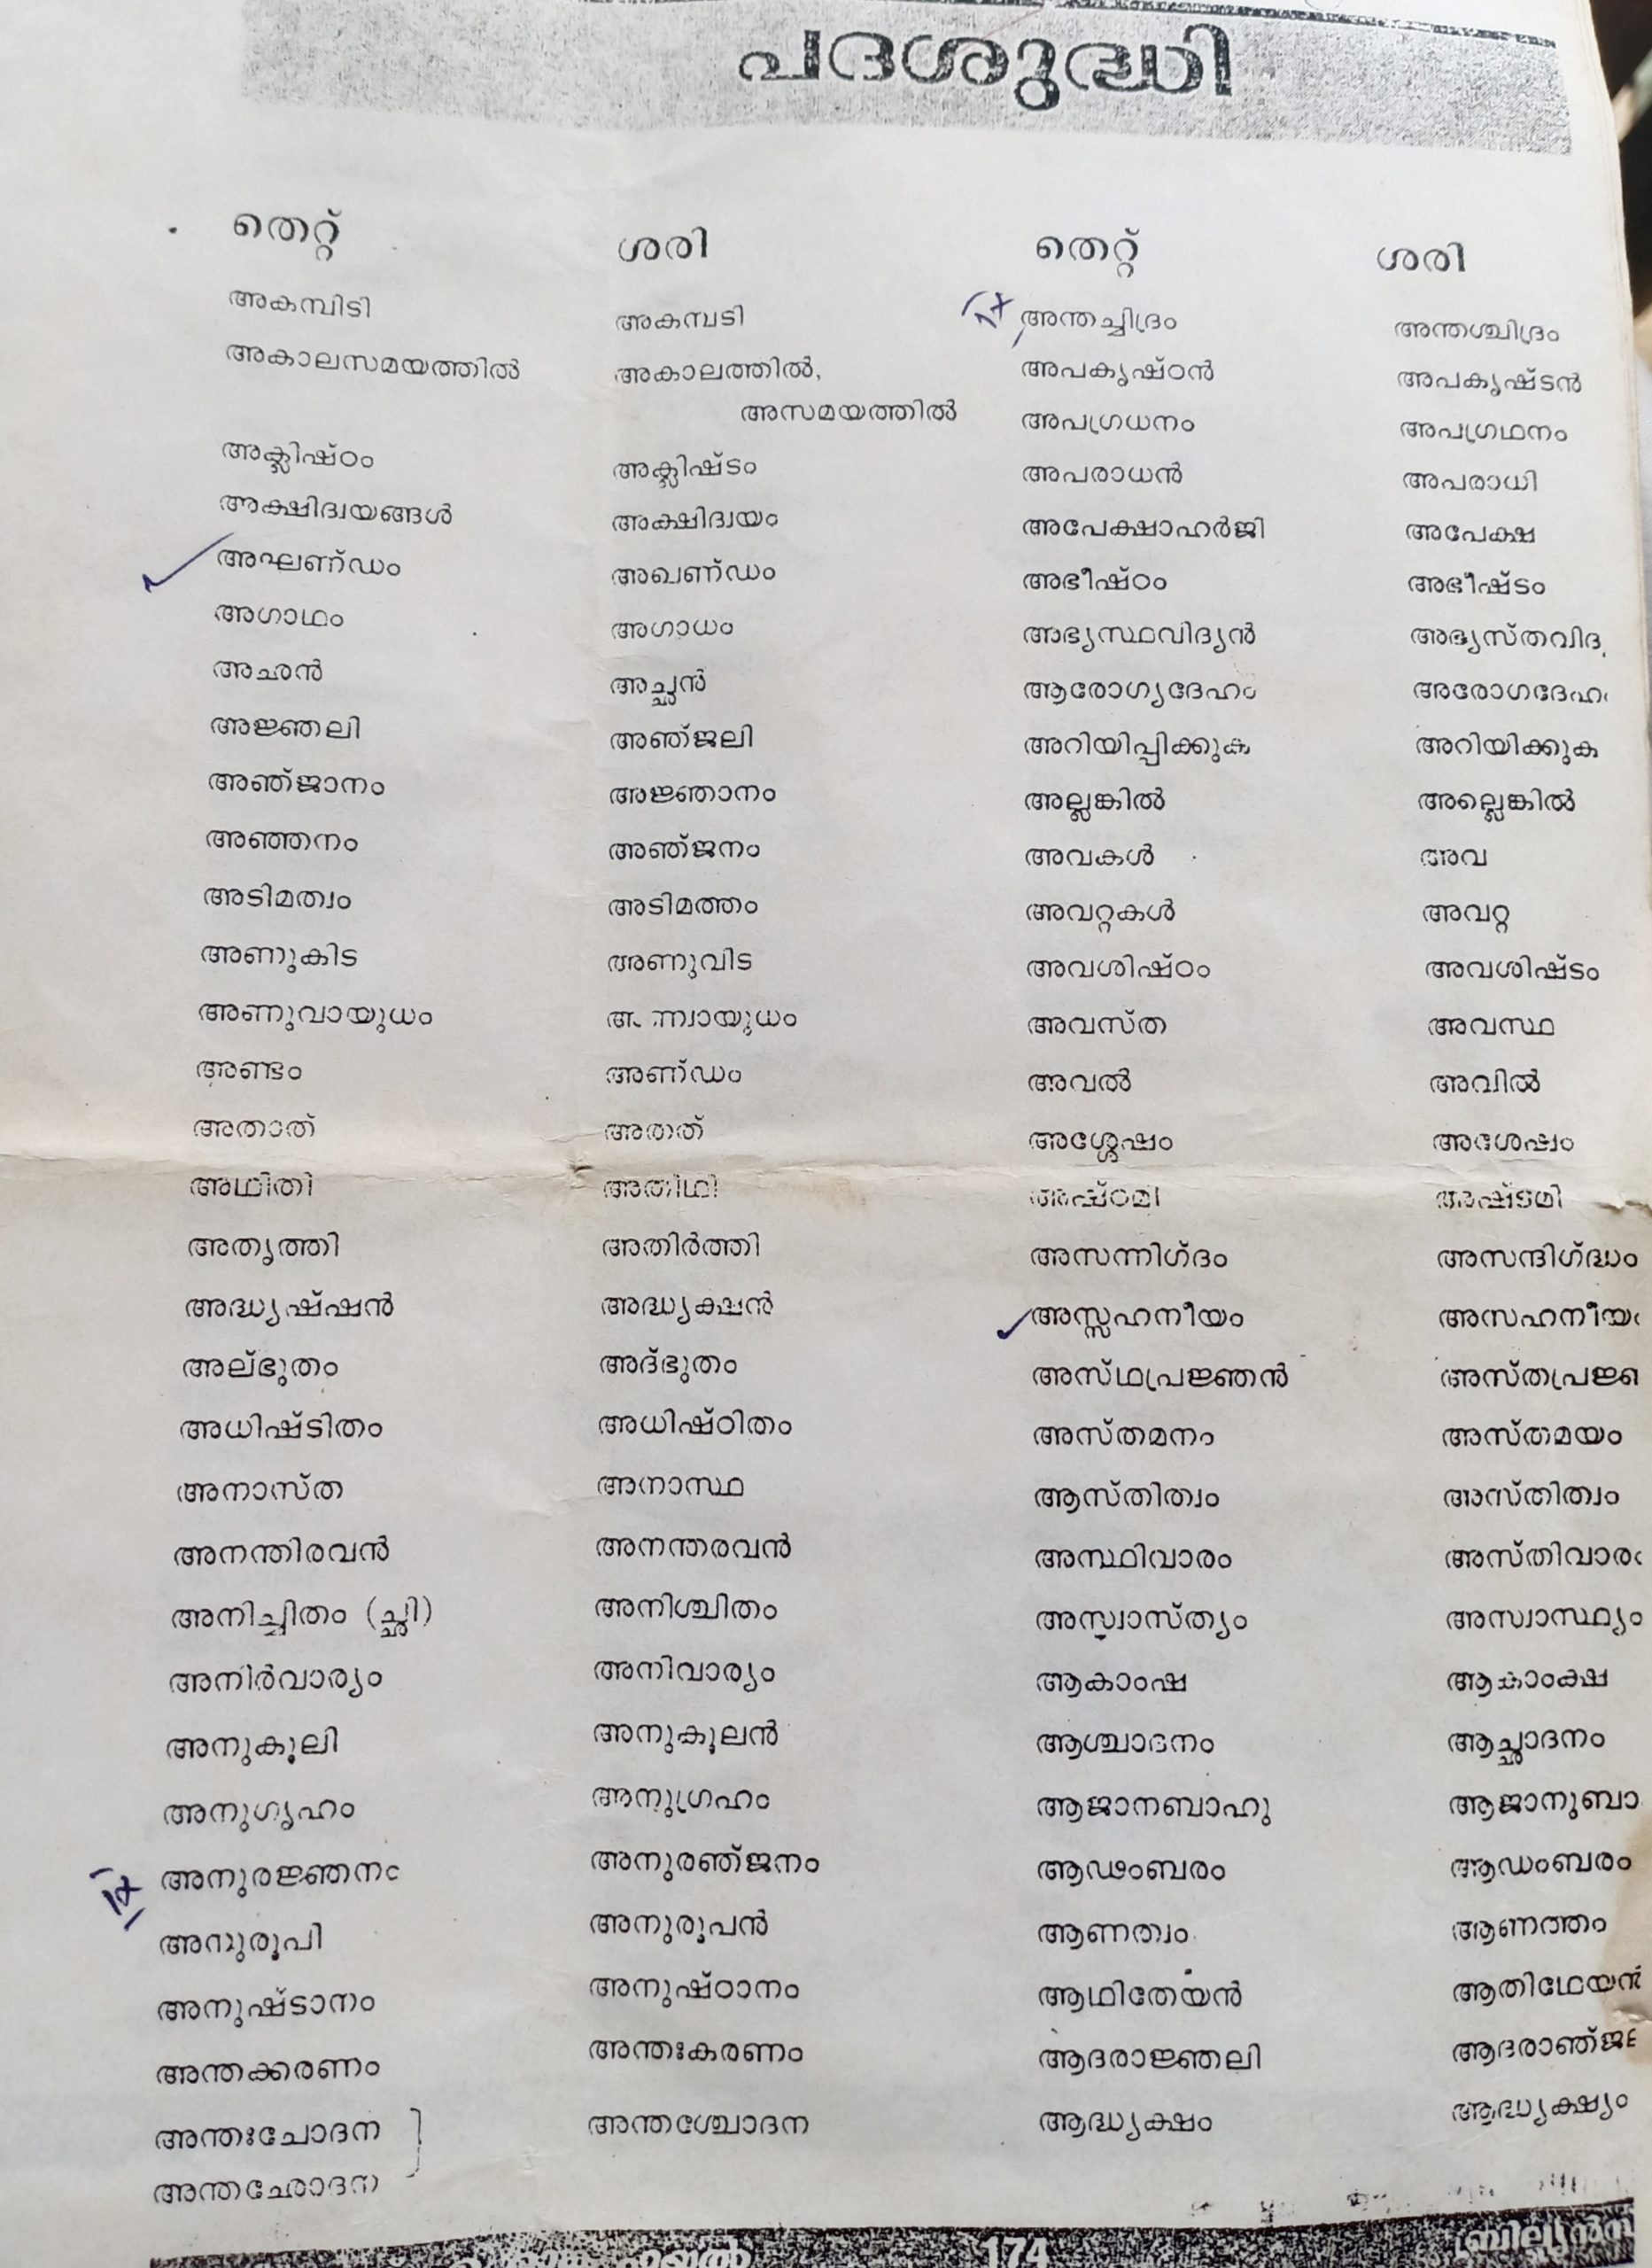 പദശുദ്ധി
തെറ്റ് ശരി തെറ്റ് ശരി
അകമ്പിടി അകമ്പടി അന്തച്ഛിദ്രം അന്തശ്ഛിദ്രം
അകാലസമയത്തിൽ അകാലത്തിൽ, അപകൃഷ്ഠൻ അപകൃഷ്ടൻ
അസമയത്തിൽ അപഗ്രധനം അപഗ്രഥനം
അക്ലിഷ്ഠം അക്ലിഷ്ടം അപരാധൻ അപരാധി
അക്ഷിദ്വയങ്ങൾ അക്ഷിദ്വയം അപേക്ഷാഹർജി അപേക്ഷ
അഘണ്ഡം അഖണ്ഡം അഭീഷ്ഠം അഭീഷ്ടം
അഗാഥം അഗാധം അഭ്യസ്ഥവിദ്യൻ
അഛൻ അച്ഛൻ ആരോഗ്യദേഹം അരോഗദേഹം
അജ്ഞലി അഞ്ജലി അറിയിപ്പിക്കുക അറിയിക്കുക
അഞ്ജാനം അജ്ഞാനം അല്ലങ്കിൽ അല്ലെങ്കിൽ
അഞ്ഞനം അഞ്ജനം അവകൾ അവ
അടിമത്വം അടിമത്തം അവറ്റകൾ അവറ്റ
അണുകിട അണുവിട അവശിഷ്ഠം അവശിഷ്ടം
അണുവായുധം അവസ്ത അവസ്ഥ
അണ്ടം അണ്ഡം അവൽ അവിൽ
അതാത് അതത് അശ്ശേഷം അശേഷം
അഥിതി അതിഥി അഷ്ഠമി അഷ്ടമി
അതൃത്തി അതിർത്തി അസന്നിഗ്ദം അസന്ദിഗ്ദ്ധം
അദ്ധ്യഷ്ഷൻ അദ്ധ്യക്ഷൻ അസ്സഹനീയം അസഹനീയം
അല്ഭുതം അദ്ഭുതം അസ്ഥപ്രജ്ഞൻ അസ്തപ്രജ്ഞ
അധിഷ്ടിതം അധിഷ്ഠിതം അസ്തമനം അസ്തമയം
അനാസ്ത അനാസ്ഥ ആസ്തിത്വം അസ്തിത്വം
അനന്തിരവൻ അനന്തരവൻ അസ്ഥിവാരം അസ്തിവാരം
അനിച്ചിതം (ച്ഛി) അനിശ്ചിതം അസ്വാസ്ത്യം അസ്വാസ്ഥ്യം
അനിർവാര്യം അനിവാര്യം ആകാംഷ ആകാംക്ഷ
അനുകൂലി അനുകൂലൻ ആശ്ചാദനം ആച്ഛാദനം
അനുഗൃഹം അനുഗ്രഹം ആജാനബാഹു ആജാനുബാ
അനുരജ്ഞനം അനുരഞ്ജനം ആഢംബരം ആഡംബരം
അനുരൂപി അനുരൂപൻ ആണത്വം ആണത്തം
അനുഷ്ടാനം അനുഷ്ഠാനം ആഥിതേയൻ ആതിഥേയൻ
അന്തക്കരണം അന്തഃകരണം ആദരാജ്ഞലി ആദരാഞ്ജ
അന്തഃചോദന അന്തശ്ചോദന ആദ്ധ്യക്ഷം ആദ്ധ്യക്ഷ്യം
അന്തഛോദന
174